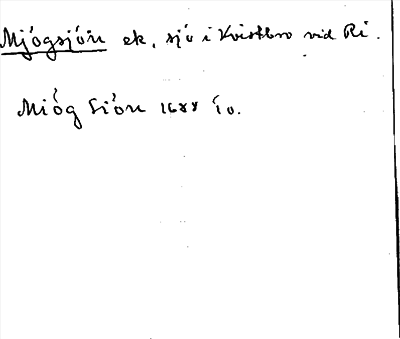 Mjögsjön ek. sjö i Kvistbro vid Ri.
Miög Siön 1688 Ío.